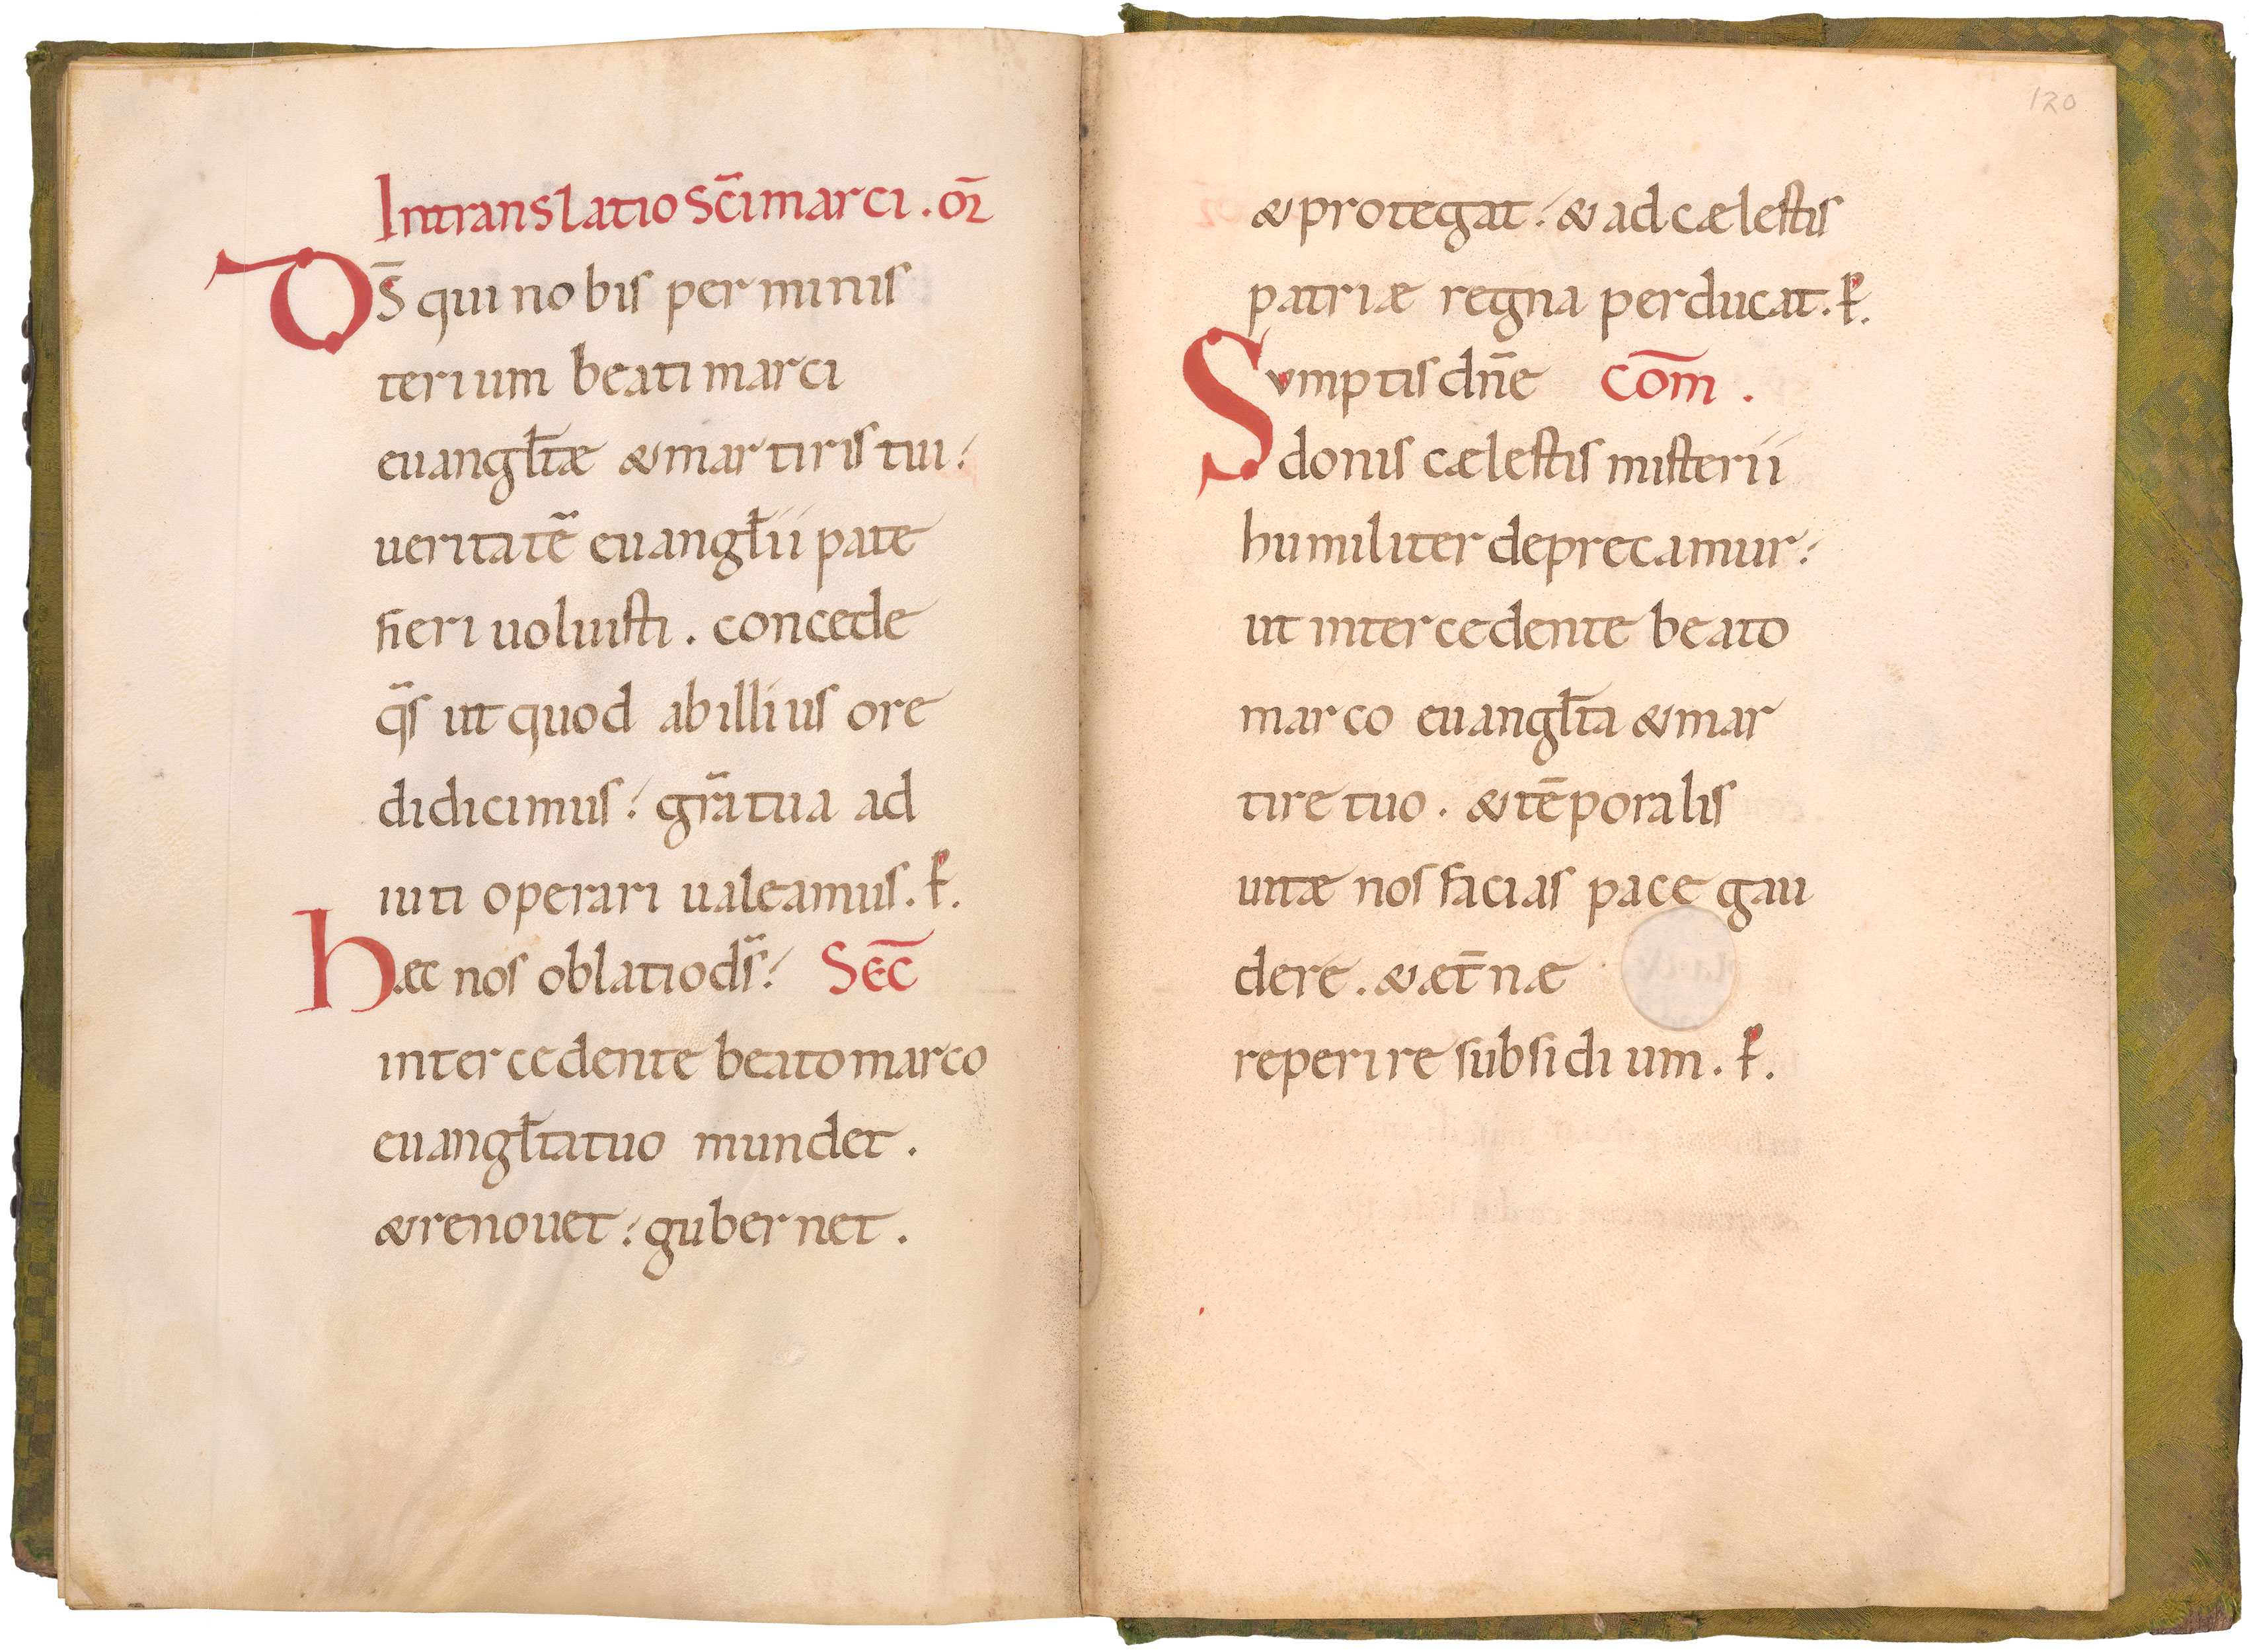 In translatio Sc̄i marci. or̄
DS̄ qui nobis per minis
terium beati marci
euangłtæ & martiris tui:
ueritatē euangłii pate
fieri uoluisti. concede
q̄s ut quod ab illius ore
didicimus: grātua ad
iuti operari ualeamus. P̄.
hæc nos oblatio ds̄: Sec̄
intercedente beato marco
euangłta tuo mundet.
& renouet: gubernet.
120
& protegat: & ad cælestis
patriæ regna perducat. P̄.
Sumptis dn̄e Com̄.
donis cælestis misterii
humiliter deprecamur:
ut intercedente beato
marco euangłta & mar
tire tuo. & tēporalis
uitæ nos facias pace gau
dere. & æt̄næ
reperire subsidium. P̄.